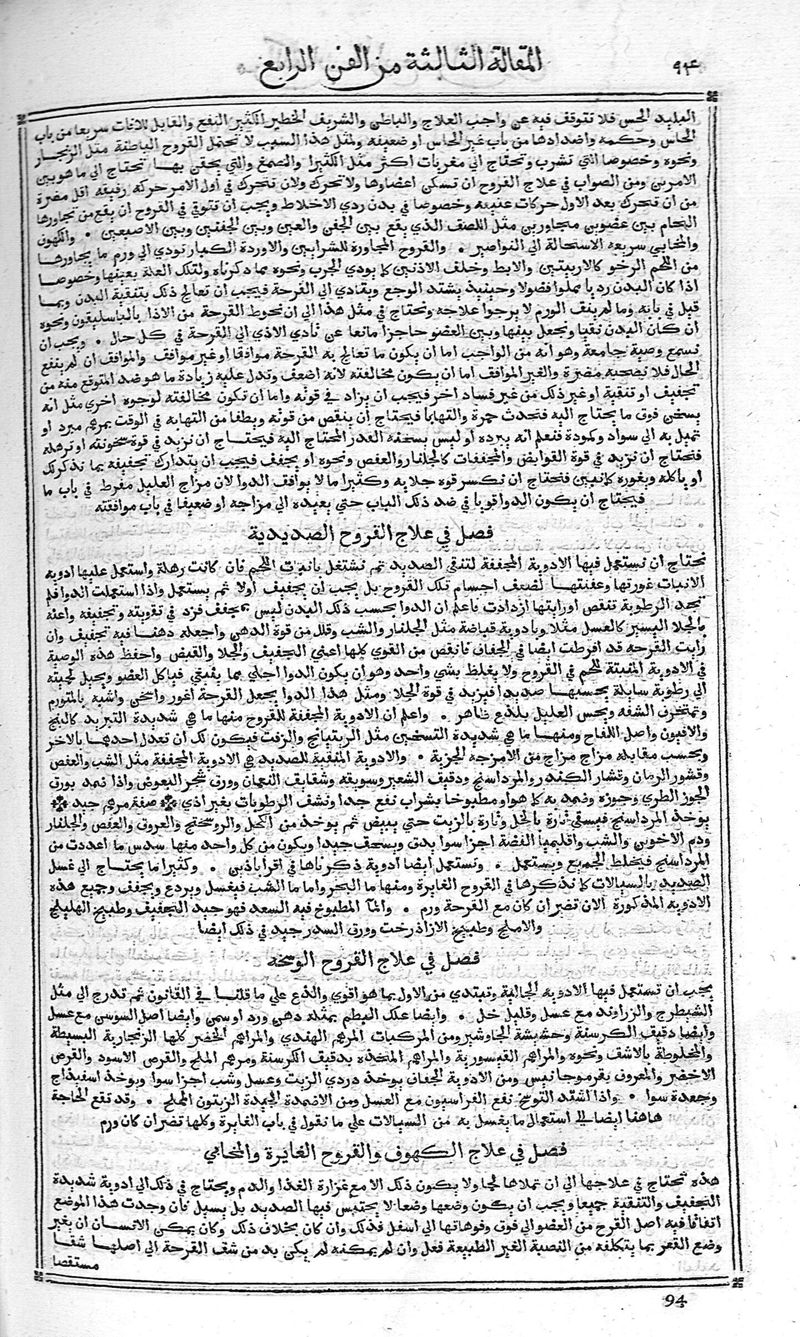 المقالة الثالثة من الفن الرابع ٩٤
البليد الحس فلا تتوقف فيه عن واجب العلاج والباطن والشريف الخطير الكثير النفع والقابل للافات سريعا من باب
الحاس وحكمه واضدادها من باب غير الحاس او ضعيفه ولمثل هذا السبب لا تحتمل القروح الباطنة مثل الزنجار
ونحوه وخصوصا التي تشرب وتحتاج الي مغريات اكثر مثل الكثيرا والصمغ والتي يحقن بها تحتاج الي ما هو بين
الامرين ومن الصواب في علاج القروح ان تسكن اعضاوها ولا تحرك ولان تتحرك في اول الامر حركه رفيقه اقل مضرة
من ان تتحرك بعد الاول حركات عنيفة وخصوصا في بدن ردي الاخلاط ويجب ان تتوقي في القروح ان يقع من تجاورها
التحام بين عضوين متجاورين مثل اللصف الذي يقع بين الجفن والعين وبين الجفنين وبين الاصبعين ٠ والكهوف
والمخابي سريعة الاستحالة الي النواصير ٠ والقروح المجاورة للشرايين والاوردة الكبار تودي الي ورم ما يجاورها
من اللحم الرخو كالاربيتين والابط وخلف الاذنين كما يودي الجرب ونحوه مما ذكرناه ولتلك العلة بعينها وخصوصا
اذا كان البدن رديا مملوا فضولا وحينيذ يشتد الوجع ويتادي الي القرحة فيجب ان تعالج ذلك بتنقية البدن وبما
قيل في بابه وما لم ينف الورم لا يرجوا علاجه وتحتاج في مثل هذا الي ان تحوط القرحة من الاذا بالباسليقون ونحوه
ان كان البدن نقيا وتجعل بينها وبين العضو حاجزا مانعا عن تادي الاذي الي القرحة في كل حال ٠ ويجب ان
تسمع وصية جامعة وهو انه من الواجب اما ان يكون ما تعالج به القرحة موافقا او غير موافق والموافق ان لم ينفع
الحال فلا يصحبه مضرة والغير الموافق اما ان يكون مخالفته لانه اضعف وتدل عليه زيادة ما هو ضد المتوقع منه من
تجفيف او تنقية او غير ذلك من غير فساد اخر فيجب ان يزاد في قوته واما ان تكون مخالفته لوجوه اخري مثل انه
يسخن فوق ما يحتاج اليه فتحدث حمرة والتهابا فيحتاج ان ينقص من قوته ويطفا من التهابه في الوقت بمرهم مبرد او
تميل به الي سواد وكمودة فتعلم انه يبرده او ليس يسخنه القدر المحتاج اليه فيحتاج ان تزيد في قوة سخونته او ترهله
فتحتاج ان تزيد في قوة القوابض والمجففات كالجلنار والعفص ونحوه او يجفف فيجب ان يتدارك تجفيفه بما نذكر لك
او ياكله ويغوره فتحتاج ان تكسر قوة جلايه وكثيرا ما لا يوافق الدوا لان مزاج العليل مفرط في باب ما
فيحتاج ان يكون الدوا قويا في ضد ذلك الباب حتي يعيده الي مزاجه او ضعيفا في باب موافقته
فصل في علاج القروح الصديدية
تحتاج ان تستعمل فيها الادوية المجففة لتنقي الصديد ثم تشتغل بانبات اللحم فان كانت رهلة واستعمل عليها ادوية
الانبات غورتها وعفنتها لضعف اجسام تلك القروح بل يجب ان يجفف اولا ثم يستعمل واذا استعملت الدوا فلم
تجد الرطوبة تنقص او رايتها ازدادت فاعلم ان الدوا بحسب ذلك البدن ليس بمجفف فزد في تقويته وتجفيفه واعنه
بالجلا اليسير كالعسل مثلا وبادوية قباضة مثل الجلنار والشب وقلل من قوة الدهن واجعله دهنا فيه تجفيف وان
رايت القرحة قد افرطت ايضا في الجفاف فانقص من القوي كلها اعني التجفيف والجلا والقبض واحفظ هذه الوصية
في الادوية المنبتة للحم في القروح ولا يغلظ بشي واحد وهو ان يكون الدوا اجلي مما ينبغي فياكل العضو ويحيل لحيمته
الي رطوبة سايلة يحسبها صديدا فيزيد في قوة الجلا ومثل هذا الدوا يجعل القرحة اغور واسخن واشبه بالمتورم
وتمتخرق الشفه ويحس العليل بلذع ظاهر ٠ واعلم ان الادوية المجففة للقروح منها ما هي شديدة التبريد كالبنج
والافيون واصل اللفاح ومنها ما هي شديدة التسخين مثل الريتيانج والزفت فيكون لك ان تعدل احدها بالاخر
وبحسب مقابلة مزاج مزاج من الامزجة الجزية ٠ والادوية المنقية للصديد هي الادوية المجففة مثل الشب والعفص
وقشور الرمان وقشار الكندر والمرداسنج ودقيق الشعير وسويقه وشقايق النعمان وورق شجر البعوض واذا ضمد بورق
الجوز الطري وجوزه وضمد به كما هو او مطبوخا بشراب نفع جدا ونشف الرطوبات بغير اذي ❊ صفة مرهم جيد ❊
يوخذ المرداسنج فيسقي تارة بالخل وتارة بالزيت حتي يبيض ثم يوخذ من الكحل والروسختج والعروق والعفص والجلنار
ودم الاخوين والشب واقليميا الفضة اجزا سوا يدق ويسحق جيدا ويكون من كل واحد منها سدس ما اعددت من
المرداسنج فيخلط الجميع ويستعمل ٠ وتستعمل ايضا ادوية ذكرناها في اقراباذين ٠ وكثيرا ما يحتاج الي غسل
الصديد بالسيالات كما نذكرها في القروح الغايرة ومنها ما البحر واما ما الشب فيغسل ويردع ويجفف وجميع هذه
الادوية المذكورة الان تضر ان كان مع القرحة ورم ٠ والما المطبوخ فيه السعد فهو جيد التجفيف وطبيخ الهليلج
والاملج وطبيخ الازاذرخت وورق السدر جيد في ذلك ايضا
فصل في علاج القروح الوسخه
يجب ان تستعمل فيها الادوية الجالية وتبتدي من الاول بما هو اقوي والذع علي ما قلنا في القانون ثم تدرج الي مثل
الشيطرج والزراوند مع عسل وقليل خل ٠ وايضا علك البطم بمثله دهن ورد او سمن وايضا اصل السوسن مع عسل
وايضا دقيق الكرسنة وحشيشة الجاوشير ومن المركبات المرهم الهندي والمراهم الخضر كلها الزنجارية البسيطة
والمخلوطة بالاشف ونحوه والمراهم القيسورية والمراهم المتخذه بدقيق الكرسنة ومرهم الملح والقرص الاسود والقرص
الاخضر والمعروف بغرموجانيس ومن الادوية الجفان يوخذ دردي الزيت وعسل وشب اجزا سوا ويوخذ اسفيداج
وجعدة سوا ٠ واذا اشتد التوسخ نفع الفراسيون مع العسل ومن الاضمدة الجيدة الزيتون المملح ٠ وقد تقع الحاجة
هاهنا ايضا الي استعمال ما يغسل به من السيالات علي ما نقول في باب الغايرة وكلها تضر ان كان ورم
فصل في علاج الكهوف والقروح الغايرة والمخابي
هذه تحتاج في علاجها الي ان تملاها لحما ولا يكون ذلك الا مع غزارة الغذا والدم ويحتاج في ذلك الي ادوية شديدة
التجفيف والتنقية جميعا ويجب ان يكون وضعها وضعا لا يحتبس فيها الصديد بل يسيل فان وجدت هذا الموضع
اتفاقا فيه اصل القرح من العضو الي فوق وفوهاتها الي اسفل فذلك وان كان بخلاف ذلك وكان يمكن الانسان ان يغير
وضع القعر بما يتكلفه من النصبة الغير الطبيعة فعل وان لم يمكنه لم يكن بد من شف القرحة الي اصلها شفا
مستقصا
94